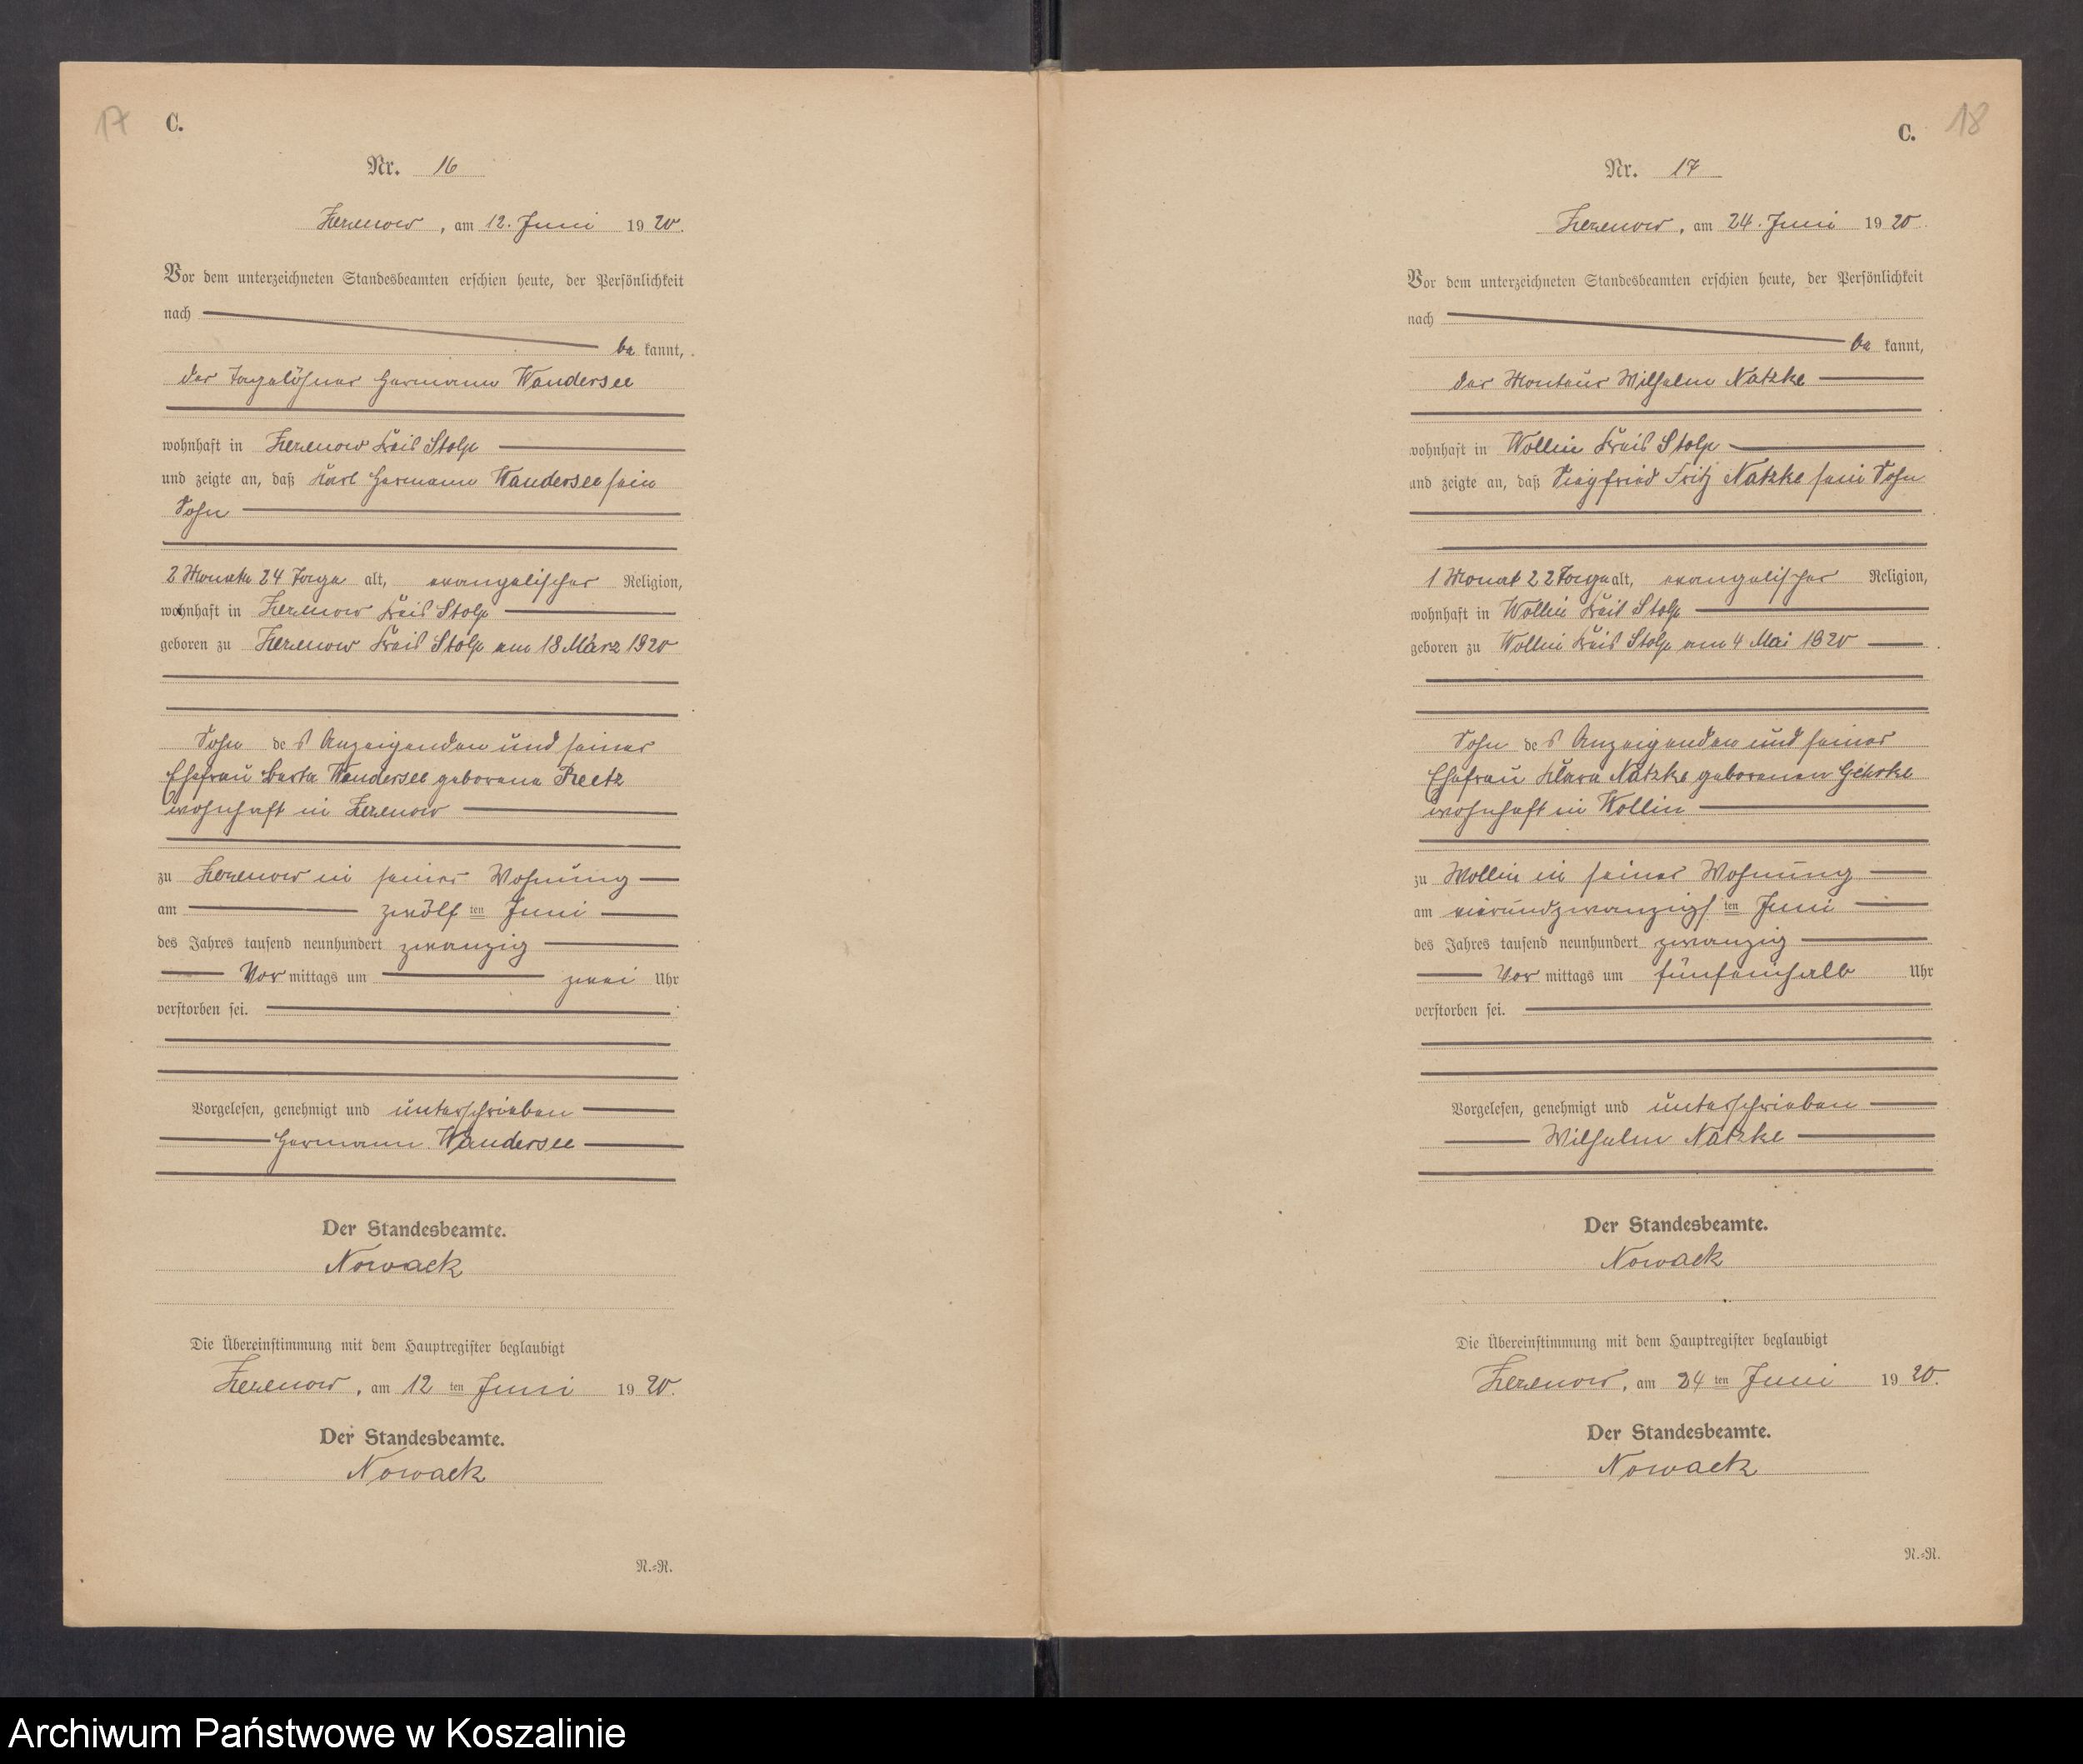 17
C.
Nr. 16
Zezenow, am 12. Juni 1920.
Vor dem unterzeichneten Standesbeamten erschien heute, der Persönlichkeit
nach
be kannt,
der Tagelöhner Hermann Wandersee
wohnhaft in Zezenow Kreis Stolp
und zeigte an, daß Karl Hermann Wandersee sein
Sohn
2 Monate 24 Tage alt, evangelischer Religion,
wohnhaft in Zezenow Kreis Stolp
geboren zu Zezenow Kreis Stolp am 18 März 1920
Sohn des Anzeigenden und seiner
Ehefrau Berta Wandersee geborene Reetz
wohnhaft in Zezenow
zu Zezenow in seiner Wohnung
am zwölf ten Juni
des Jahres tausend neunhundert zwanzig
Vor mittags um zwei Uhr
verstorben sei.
Vorgelesen, genehmigt und unterschrieben
Hermann Wandersee
Der Standesbeamte.
Nowack
Die Übereinstimmung mit dem Hauptregister beglaubigt
Zezenow, am 12 ten Juni 1920.
Der Standesbeamte.
Nowack
N.=R.
18
C.
Nr. 17
Zezenow, am 24. Juni 1920
Vor dem unterzeichneten Standesbeamten erschien heute, der Persönlichkeit
nach
be kannt,
der Monteur Wilhelm Natzke
wohnhaft in Wollin Kreis Stolp
und zeigte an, daß Siegfried Fritz Natzke sein Sohn
1 Monat 22 Tage alt, evangelischer Religion,
wohnhaft in Wollin Kreis Stolp
geboren zu Wollin Kreis Stolp am 4 Mai 1920
Sohn des Anzeigenden und seiner
Ehefrau Klara Natzke geborenen Gehrke
wohnhaft in Wollin
zu Wollin in seiner Wohnung
am vierundzwanzigs ten Juni
des Jahres tausend neunhundert zwanzig
Vor mittags um fünfeinhalb Uhr
verstorben sei.
Vorgelesen, genehmigt und unterschrieben
Wilhelm Natzke
Der Standesbeamte.
Nowack
Die Übereinstimmung mit dem Hauptregister beglaubigt
Zezenow, am 24 ten Juni 1920.
Der Standesbeamte.
Nowack
N.=R.
Archiwum Państwowe w Koszalinie